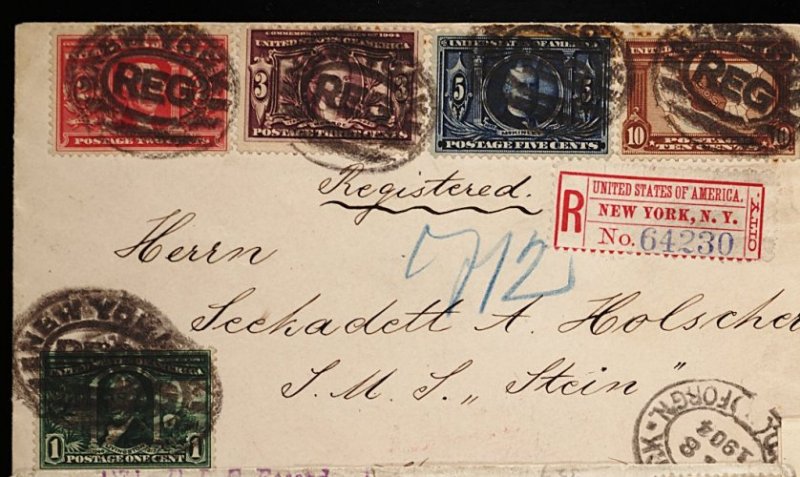 NEW YORK
REG
REG
REG
2
POSTAGE TWO CENTS
COMMEMORATIVE 1904
UNITED STATES OF AMERICA
3 3
POSTAGE THREE CENTS
UNITED STATES OF AMERICA
5 5
POSTAGE FIVE CENTS
UNITED
10 10
POSTAGE
TEN CENTS
Registered.
R
UNITED STATES OF AMERICA.
NEW YORK, N. Y.
No. 64230
Herrn
712
Seekadett A. Holsche
S. M. S. „Stein"
NEW YORK
1 1
POSTAGE ONE CENT
FORGN.
8
1904